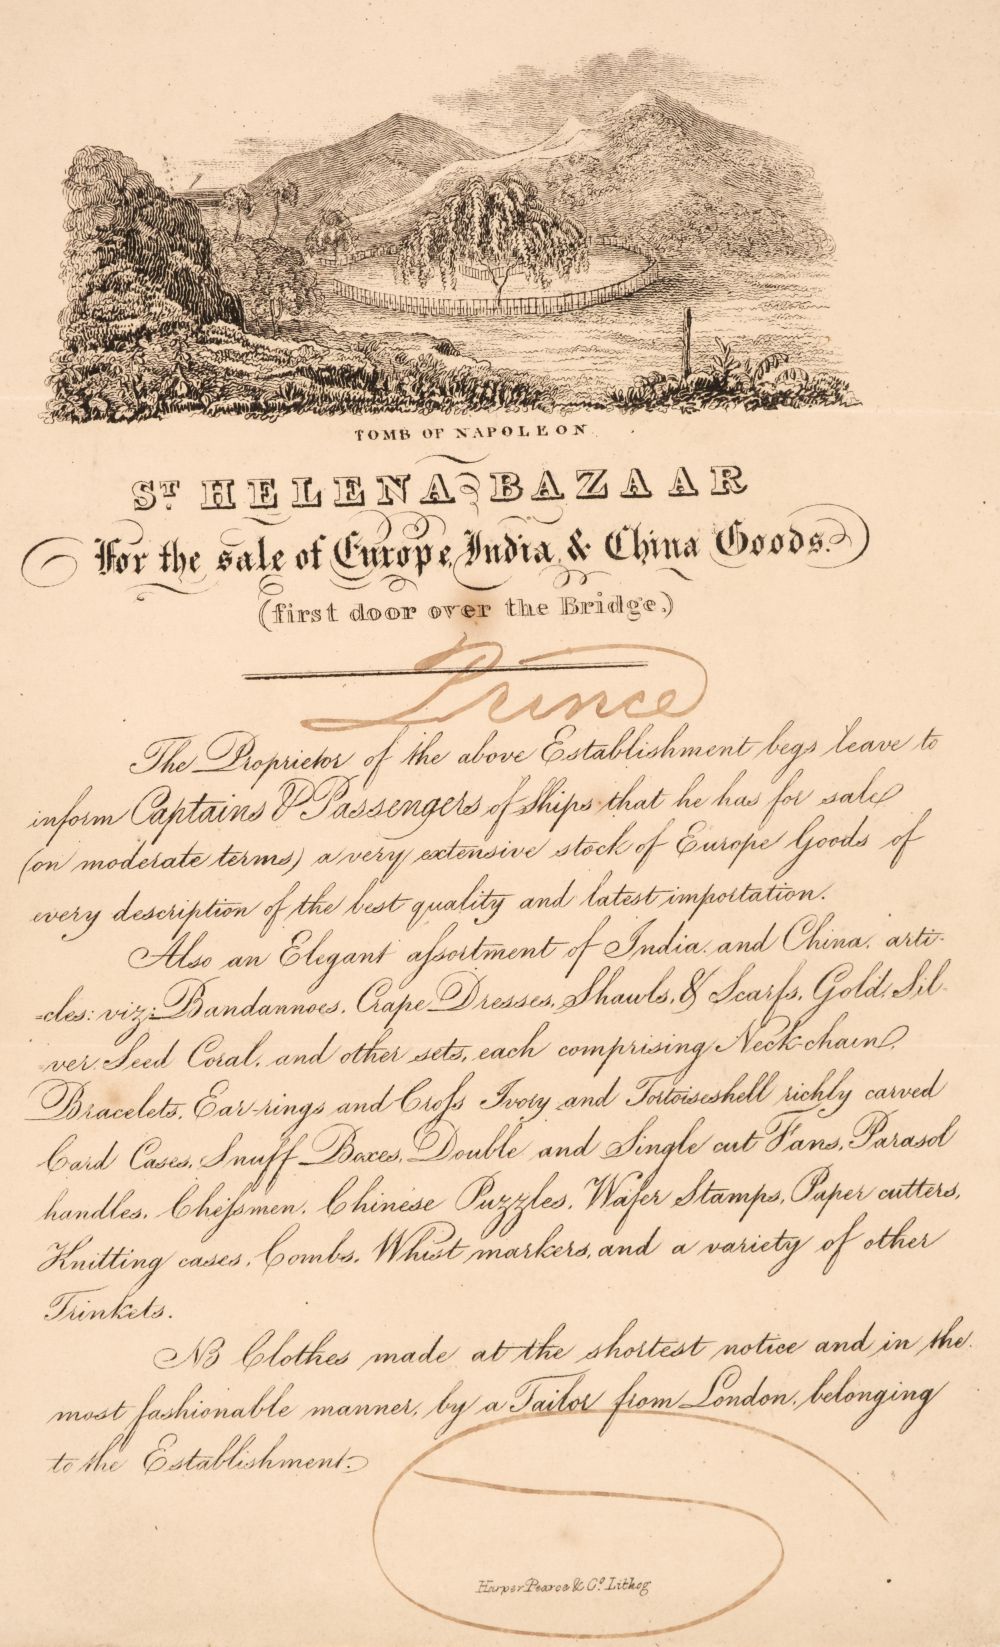 TOMB OF NAPOLEON
ST. HELENA BAZAAR
For the sale of Europe, India, & China Goods.
(first door over the Bridge,)
Prince
The Proprietor of the above Establishment begs leave to
inform Captains & Passengers of Ships that he has for sale
(on moderate terms) a very extensive stock of Europe Goods of
every description of the best quality and latest importation.
Also an Elegant assortment of India, and China, arti-
-cles: viz: Bandannoes, Crape Dresses, Shawls, & Scarfs, Gold, Sil-
ver, Seed Coral, and other sets, each comprising Neck-chain,
Bracelets, Ear-rings and Cross Ivory and Tortoiseshell richly carved
Card Cases, Snuff Boxes, Double and Single cut Fans, Parasol
handles, Chessmen, Chinese Puzzles, Wafer Stamps, Paper cutters,
Knitting cases, Combs, Whist markers, and a variety of other
Trinkets.
NB Clothes made at the shortest notice and in the
most fashionable manner, by a Tailor from London, belonging
to the Establishment.
Harper Pearce & Co. Lithog